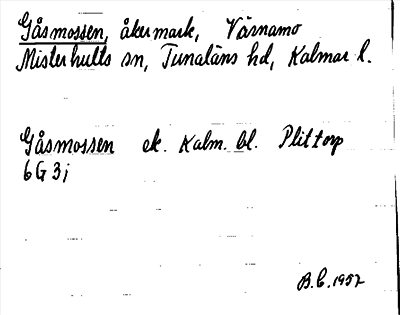 Gåsmossen, åkermark, Värnamo
Misterhults sn, Tunaläns hd, Kalmar l.
Gåsmossen ek. Kalm. bl. Plittorp
6G3j
B.C. 1957